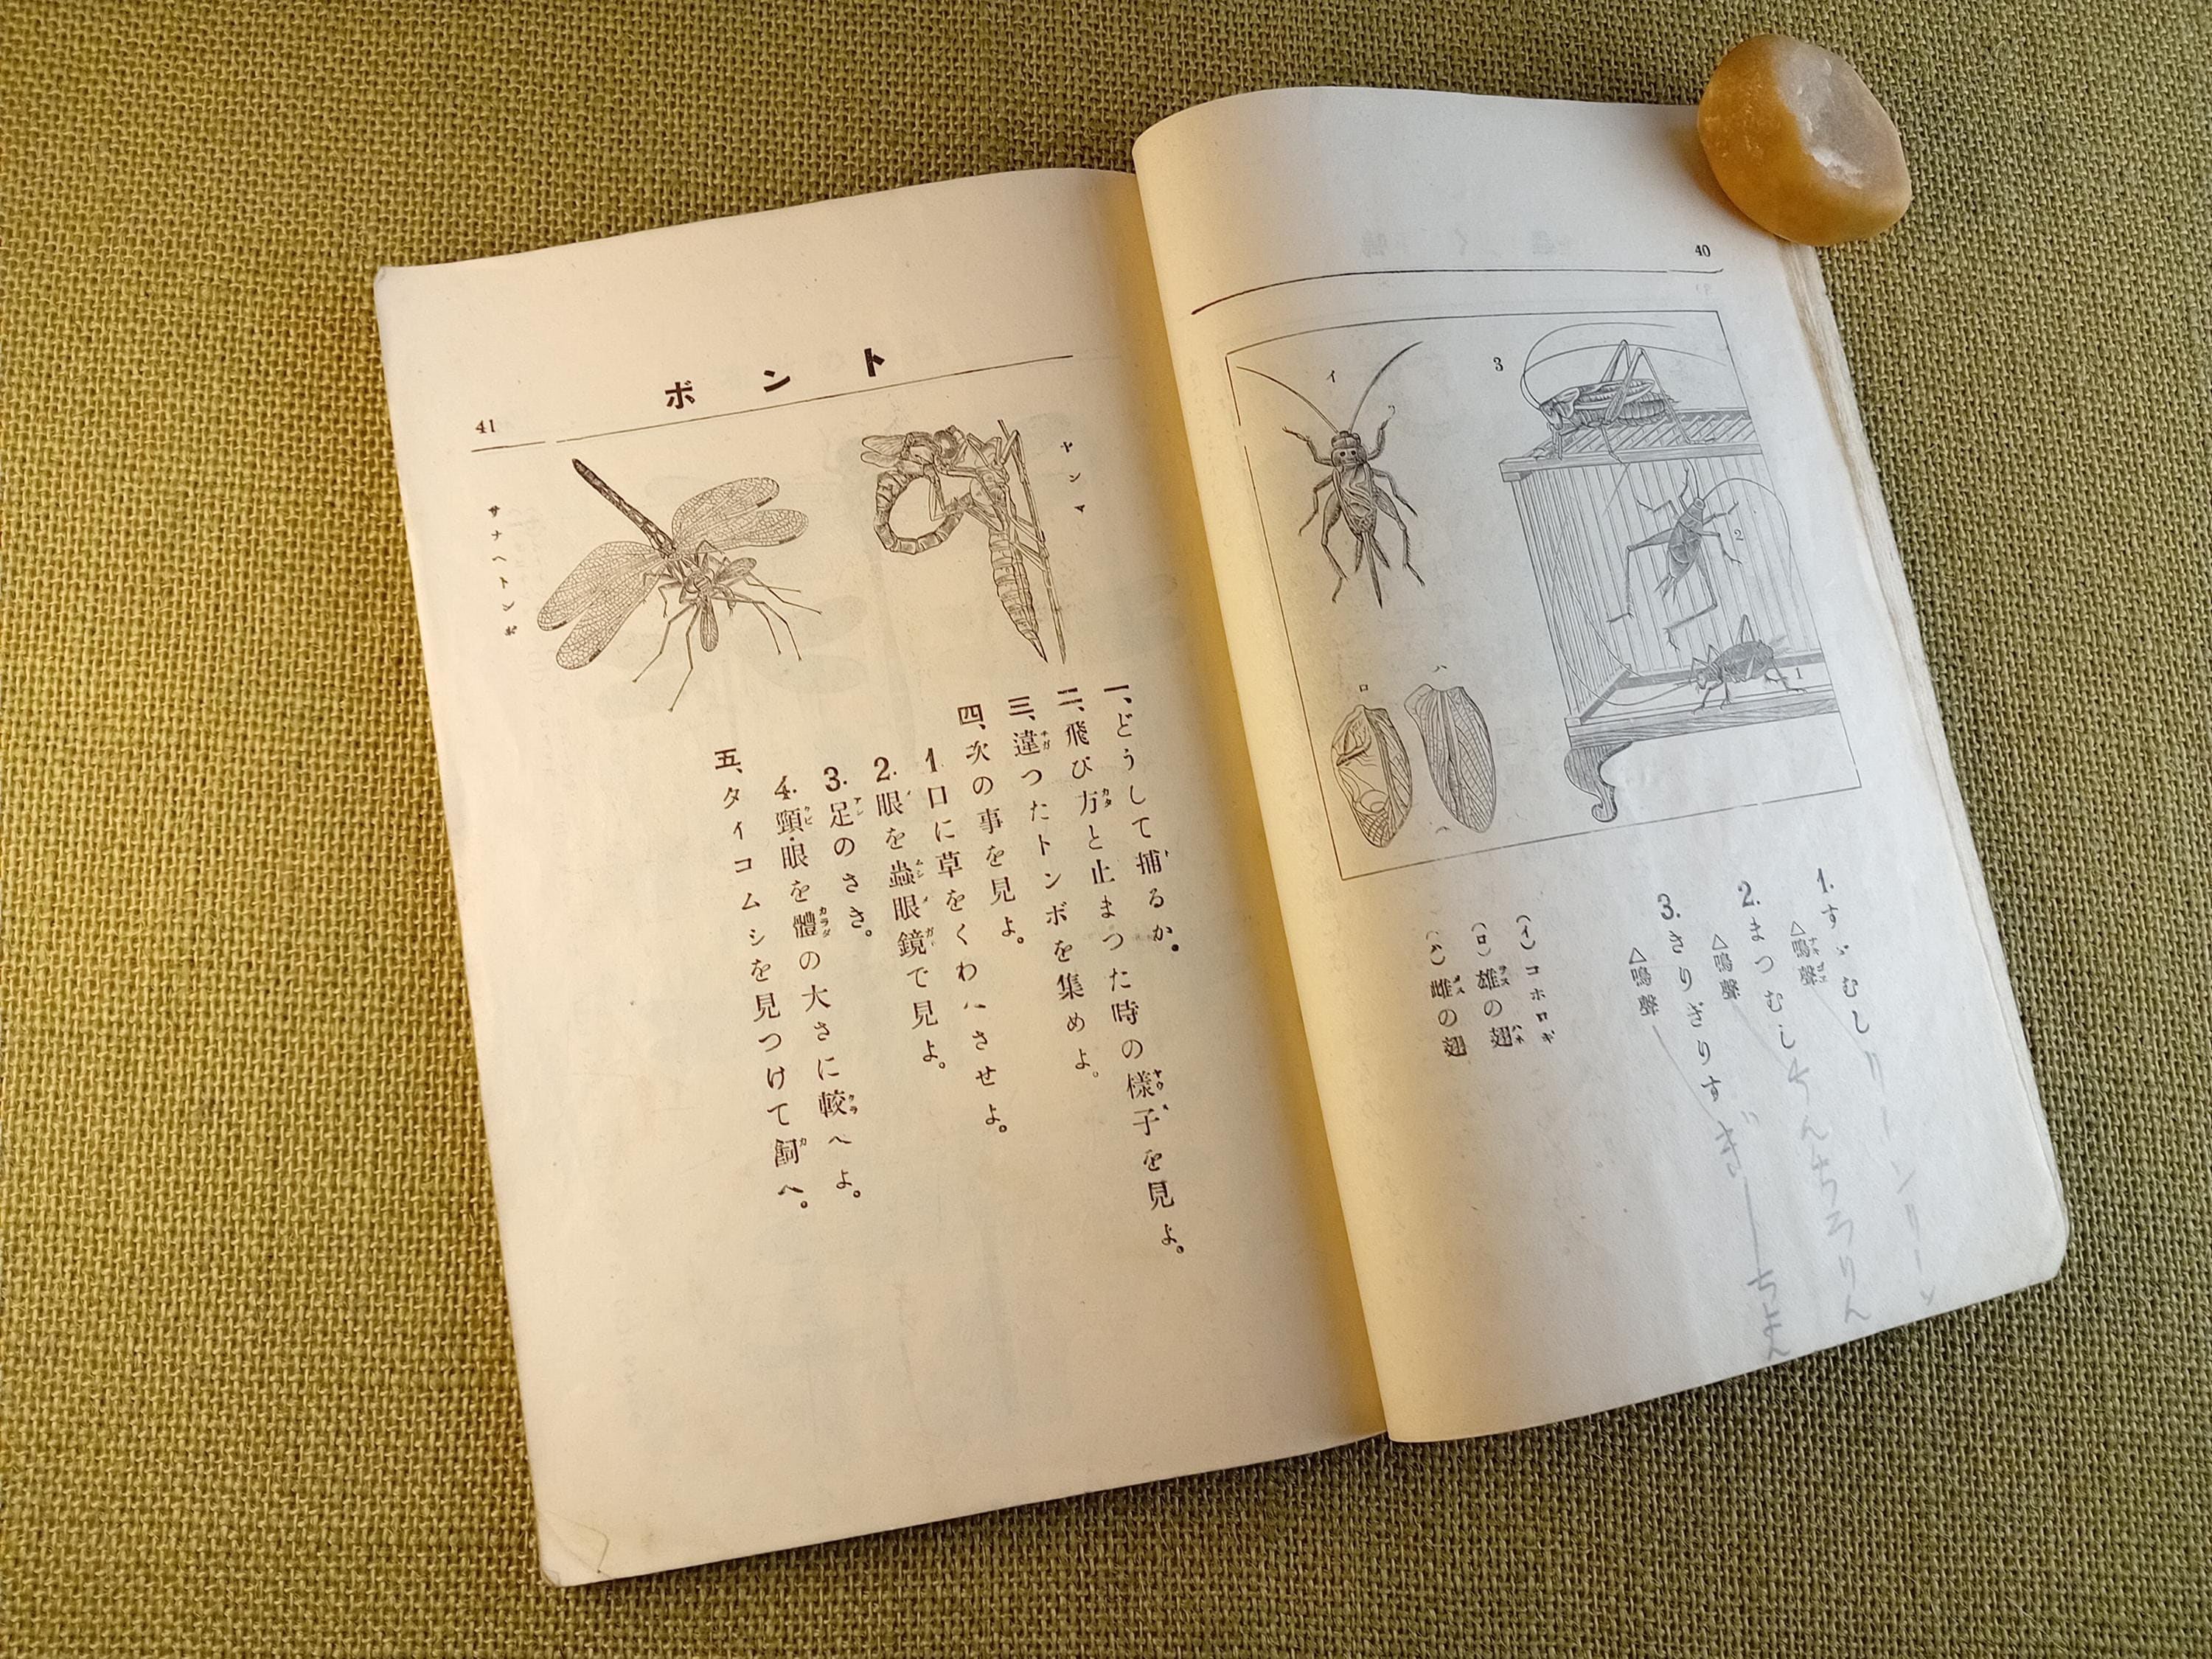 40
3
イ
2
1
ロ
ハ
1. すゞむし リーンリーン
△鳴聲
2. まつむし ちんちろりん
△鳴聲
3. きりぎりす ぎーちよん
△鳴聲
(イ) コホロギ
(ロ) 雄の翅
(ハ) 雌の翅
トンボ
41
ヤンマ
サナヘトンボ
一、どうして捕るか。
二、飛び方と止まつた時の樣子を見よ。
三、違つたトンボを集めよ。
四、次の事を見よ。
1. 口に草をくわへさせよ。
2. 眼を蟲眼鏡で見よ。
3. 足のさき。
4. 頸・眼を體の大さに較へよ。
五、タイコムシを見つけて飼へ。